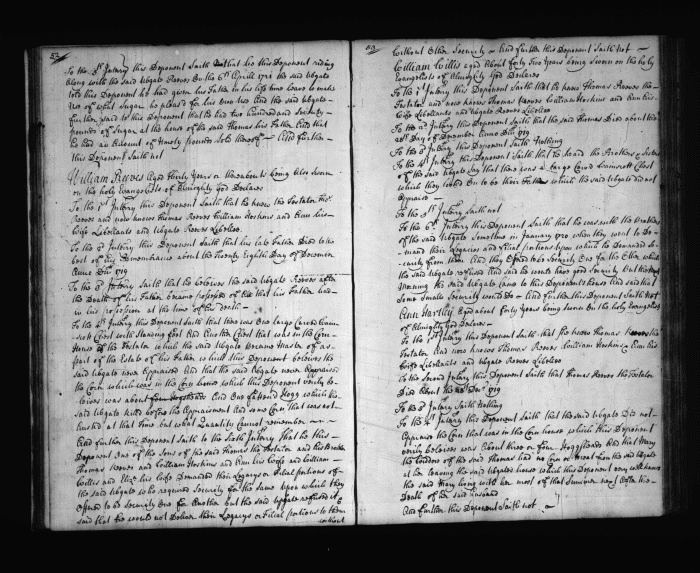 52
To the 5th Intery this Deponent Saith that he this Deponent riding
Along with the said Abgale Reeves On the 6th Aprill 1721 the said Abgale
told this Deponent he had given his Father in his life time leave to make
Use of what Sugar he pleased for his own use And the said Abgale
further Said to this Deponent that he had two hundred and Seventy
pounds of Sugar at the house of the said Thomas his Father And that
he had an Account of Ninety pounds Sold thereof And further
this Deponent Saith not
William Reeves Aged thirty Years or thereabouts being also Sworn
on the holy Evangelists of Almighty God Declares
To the 1st Intery this Deponent Saith that he knew the Testator Thos
Reeves and now knows Thomas Reeves William Hoskins and Ann his
Wife Libellants and Abgale Reeves Libellee
To the 2d Intery this Deponent Saith that his late Father Died to the
best of his Remembrance about the Twenty Eighth Day of December
Anno Dni 1719
To the 3d Intery Saith that he believes the said Abgale Reeves after
the Death of his Father became possessed of All that his Father had
in his possession at the time of his death
To the 4th Intery this Deponent Saith that there was One large Carved
Chest with drawing foot And Another Chest that was in the Corn
House of the Testator which the said Abgale became Master of as
part of the Estate of his Father which this Deponent believes the
said Abgale never Appraised And that the said Abgale never Appraised
the Corn which was in the Corn house which this Deponent verily be
leives was about four Hoggsheads And One fattened Hogg which the
said Abgale killed before the Appraisment And some Corn that was not
husked at that time but what Quantity Cannot remember
And further this Deponent Saith to the Sixth Intery that he this
Deponent One of the Sons of the said Thomas the Testator and his Brother
Thomas Reeves and William Hoskins and Ann his Wife and William
Willis and Eliz: his Wife Demanded their Legacys or Filial portions of
the said Abgale who required Security for the same upon which they
offered to be Security One for Another but the said Abgale refused it &
said that he would not Deliver their Legacys or Filial portions to them
without
53
Without Other Security And further this Deponent Saith not
William Willis aged About forty Two Years being Sworn on the holy
Evangelists of Almighty God Declares
To the 1st Intery this Deponent Saith that he knew Thomas Reeves the
Testator and now knows Thomas Reeves William Hoskins and Ann his
Wife Libellants and Abgale Reeves Libellee
To the 2d Intery this Deponent Saith that the said Thomas Died about the
28th Day of December Anno Dni 1719
To the 3d Intery this Deponent Saith Nothing
To the 4th Intery this Deponent Saith that he heard the Brothers & Sisters
of the said Abgale Say that there was a large Carved Wainscott Chest
which they looked On to be their Father's which the said Abgale did not
Appraise
To the 5th Intery Saith not
To the 6th Intery this Deponent Saith that he was with the Brothers
of the said Abgale Sometime in January 1720 when they went to De
mand their Legacies and Filial portions Upon which he Demanded Se
curity from them And they Offered to be Security One for the Other which
the said Abgale refused And said he would have good Security But the next
Morning the said Abgale came to this Deponents house And said that
Some Small Security would Do And further this Deponent Saith not
Ann Hartley Aged about forty Years being Sworn On the holy Evangelists
of Almighty God Declares
To the 1st Intery this Deponent Saith that she knew Thomas Reeves the
Testator And now knows Thomas Reeves William Hoskins & Ann his
Wife Libellants and Abgale Reeves Libellee
To the Second Intery this Deponent Saith that Thomas Reeves the Testator
Died About the Dni 1719
To the 3d Intery Saith Nothing
To the 4th Intery this Deponent Saith that the said Abgale Did not
Appraise the Corn that was in the Corn house which this Deponent
verily believes was About three or four Hoggsheads And that Mary
the Widdow of the said Thomas had no Corn or Bread from the said Abgale
at her leaving the said Abgales house which this Deponent very well knows
the said Mary living with her most of that Summer next After the
Death of her said husband
And further this Deponent Saith not